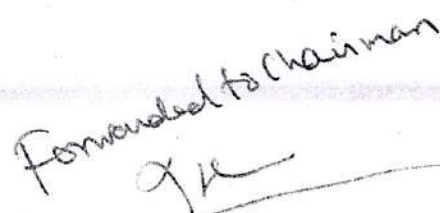 Forwarded to Chairman